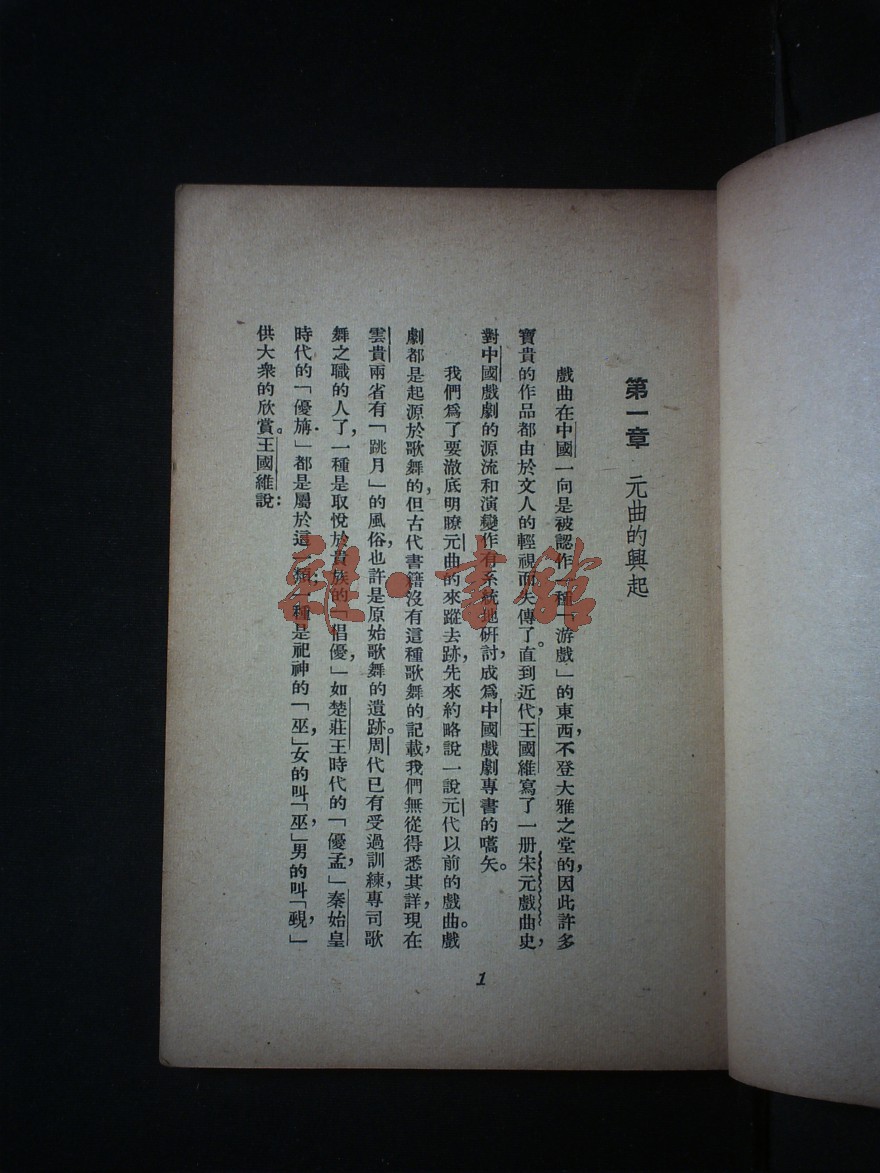 第一章　元曲的興起
戲曲在中國一向是被認作一種「游戲」的東西，不登大雅之堂的，因此許多
寶貴的作品都由於文人的輕視而失傳了。直到近代，王國維寫了一册宋元戲曲史，
對中國戲劇的源流和演變作有系統地研討，成爲中國戲劇專書的嚆矢。
我們爲了要澈底明瞭元曲的來蹤去跡，先來約略說一說元代以前的戲曲。戲
劇都是起源於歌舞的，但古代書籍沒有這種歌舞的記載，我們無從得悉其詳，現在
雲貴兩省有「跳月」的風俗，也許是原始歌舞的遺跡。周代已有受過訓練，專司歌
舞之職的人了，一種是取悅於貴族的「倡優」，如楚莊王時代的「優孟」，秦始皇
時代的「優旃」都是屬於這一類；一種是祀神的「巫」，女的叫「巫」，男的叫「覡」，
供大衆的欣賞。王國維說：
1
雜·書館